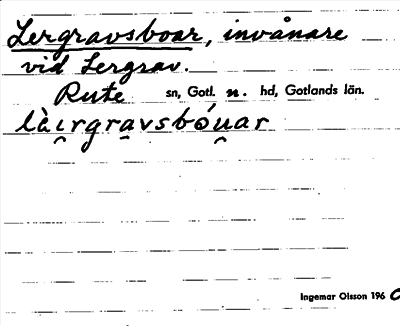 Lergravsboar, invånare
vid Lergrav.
Rute sn, Gotl. n. hd, Gotlands län.
làı̯rgravsbóu̯ar
Ingemar Olsson 1960